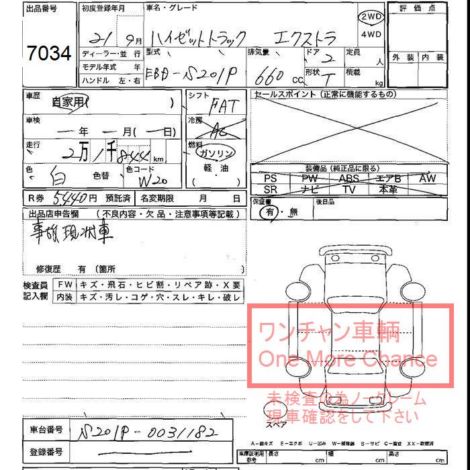 出品番号 初度登録年月 車名・グレード 評価点
7034 21年9月 ハイゼットトラック エクストラ 2WD 4WD
ディーラー・並行 型式 排気量 定員 外装 内装
モデル年式 年 EBD-S201P 660cc. 2人
ハンドル 左・右 形状 T 積載 kg
車歴 自家用( ) シフト FAT セールスポイント (正常に機能するもの)
車検 年 月( 日) 冷房 AC
走行 2万1千844km 燃料 ガソリン 軽油
色 白 色替 色コード W20 装備品(純正品に限る)
PS PW ABS エアB AW
SR ナビ TV 本革
R券 5440円 預託済 名変期限 月 日 保証書 有・無 後日品
出品店申告欄 (不良内容・欠品・注意事項等記載)
事故現状車
修復歴 有(箇所 )
検査員記入欄 FW キズ・飛石・ヒビ割・リペア跡・X要
内装 キズ・汚レ・コゲ・穴・スレ・キレ・破レ
ワンチャン車輌
One More Chance
未検査の為ノークレーム
現車確認をして下さい
スペア
車台番号 S201P-0031182
登録番号